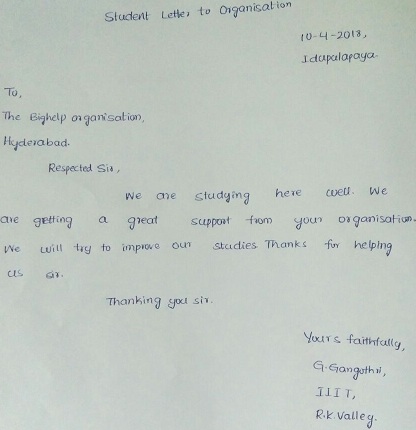 Student Letter to Organisation
10-4-2018,
Idupalapaya.
To,
The Bighelp organisation,
Hyderabad.
Respected Sir,
We are studying here well. We
are getting a great support from your organisation.
We will try to improve our studies Thanks for helping
us sir.
Thanking you sir.
Yours faithfully,
G. Gangothri,
IIIT,
R.K. Valley.